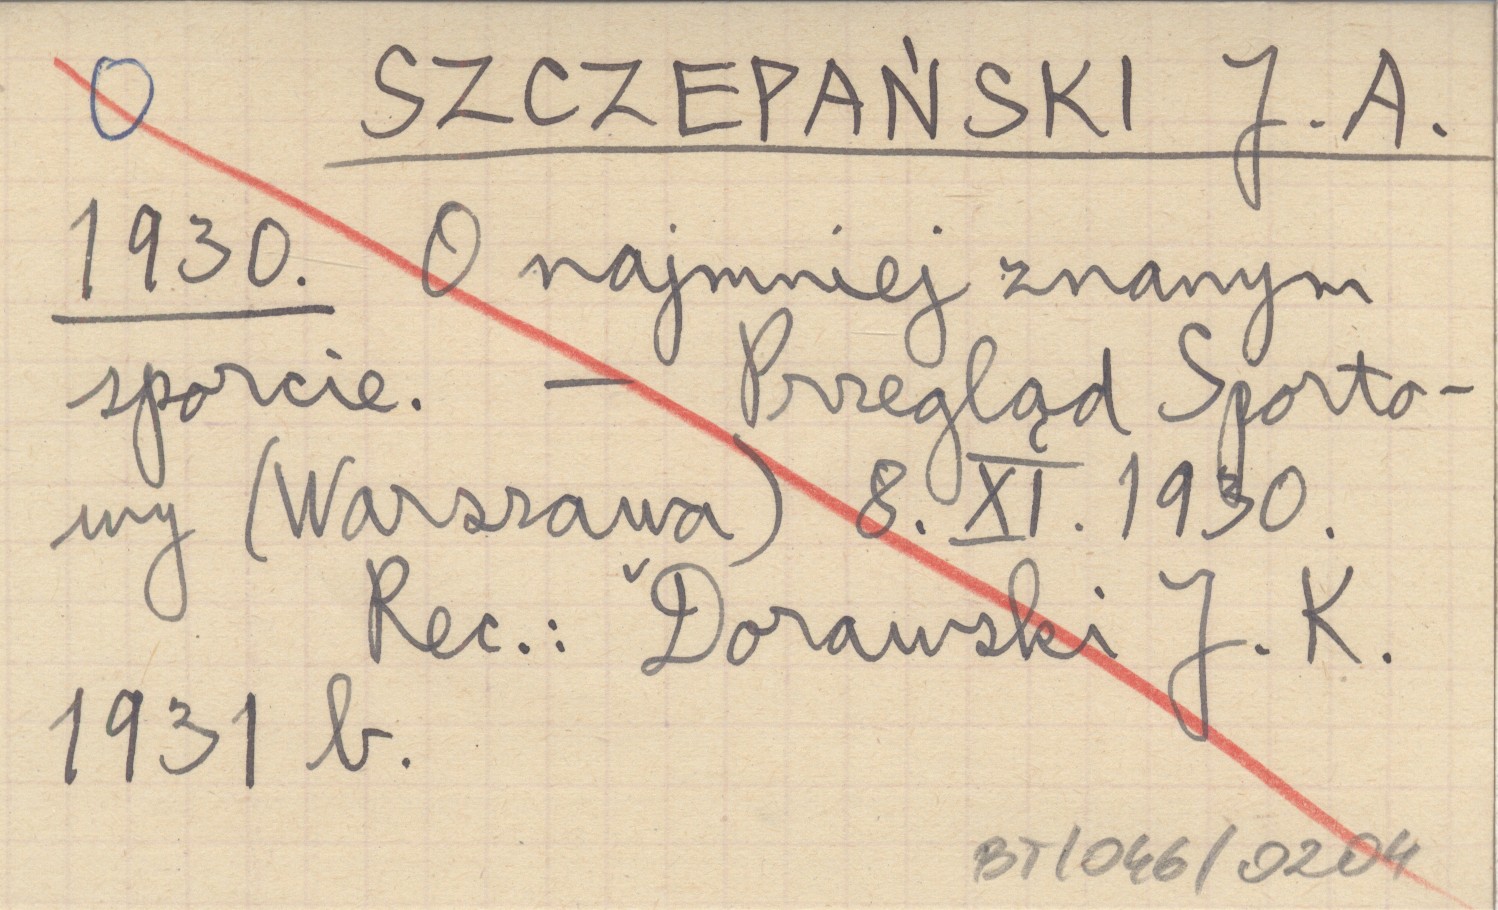 O SZCZEPAŃSKI J. A.
1930. O najmniej znanym
sporcie. — Przegląd Sporto-
wy (Warszawa) 8. XI. 1930.
Rec.: Dorawski J. K.
1931 b.
BT/046/0204